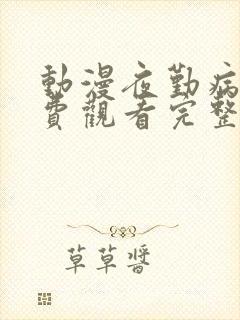 動漫夜勤病
費觀看完整
草草醬